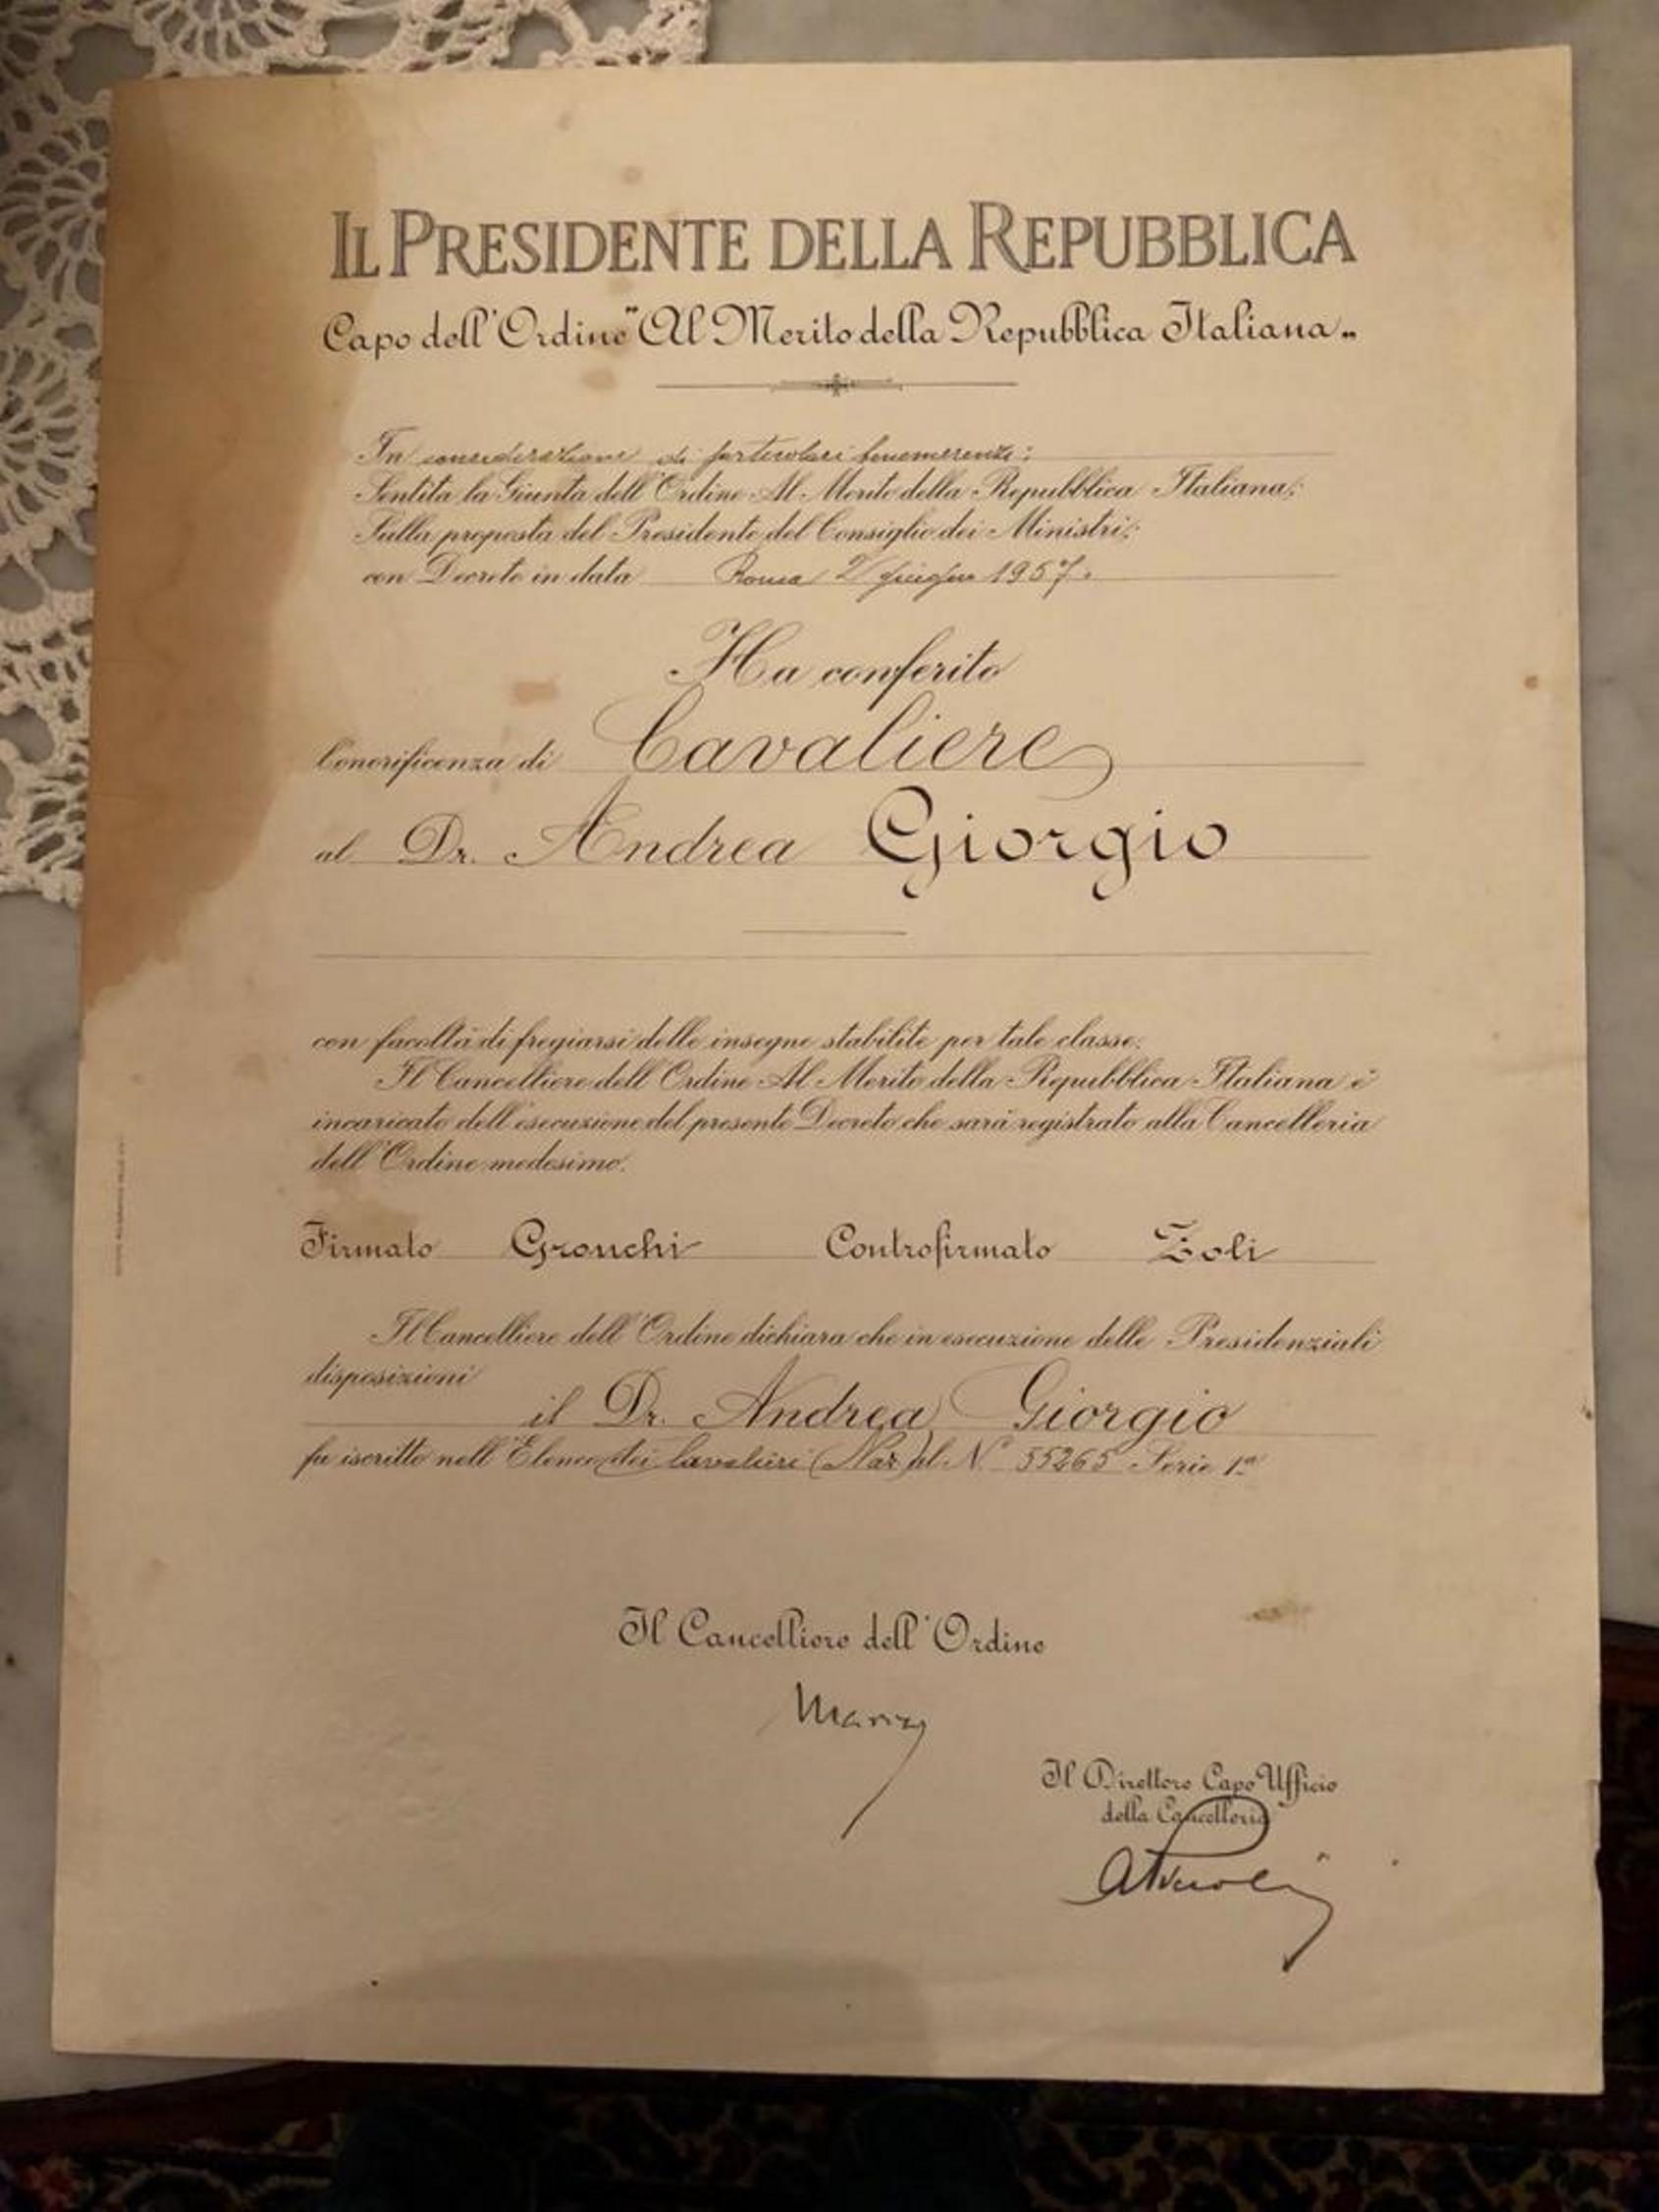 IL PRESIDENTE DELLA REPUBBLICA
Capo dell'Ordine "Al Merito della Repubblica Italiana"
In considerazione di particolari benemerenze;
Sentita la Giunta dell'Ordine Al Merito della Repubblica Italiana;
Sulla proposta del Presidente del Consiglio dei Ministri;
con Decreto in data Roma 2 giugno 1957.
Ha conferito
l'onorificenza di Cavaliere
al Dr. Andrea Giorgio
con facoltà di fregiarsi delle insegne stabilite per tale classe.
Il Cancelliere dell'Ordine Al Merito della Repubblica Italiana è
incaricato dell'esecuzione del presente Decreto che sarà registrato alla Cancelleria
dell'Ordine medesimo.
Firmato Gronchi Controfirmato Zoli
Il Cancelliere dell'Ordine dichiara che in esecuzione delle Presidenziali
disposizioni
il Dr. Andrea Giorgio
fu iscritto nell'Elenco dei Cavalieri (Naz.) al N.° 55265 Serie 1ª
Il Cancelliere dell'Ordine
Il Direttore Capo Ufficio
della Cancelleria